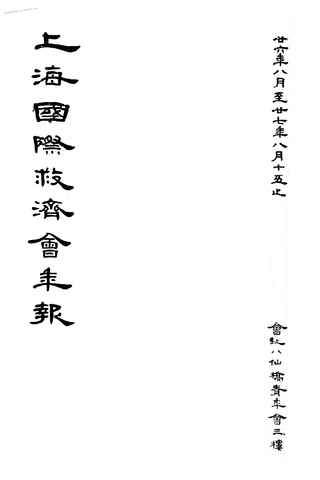 廿六年八月至廿七年八月十五止
會址八仙橋青年會三樓
上海國際救濟會年報